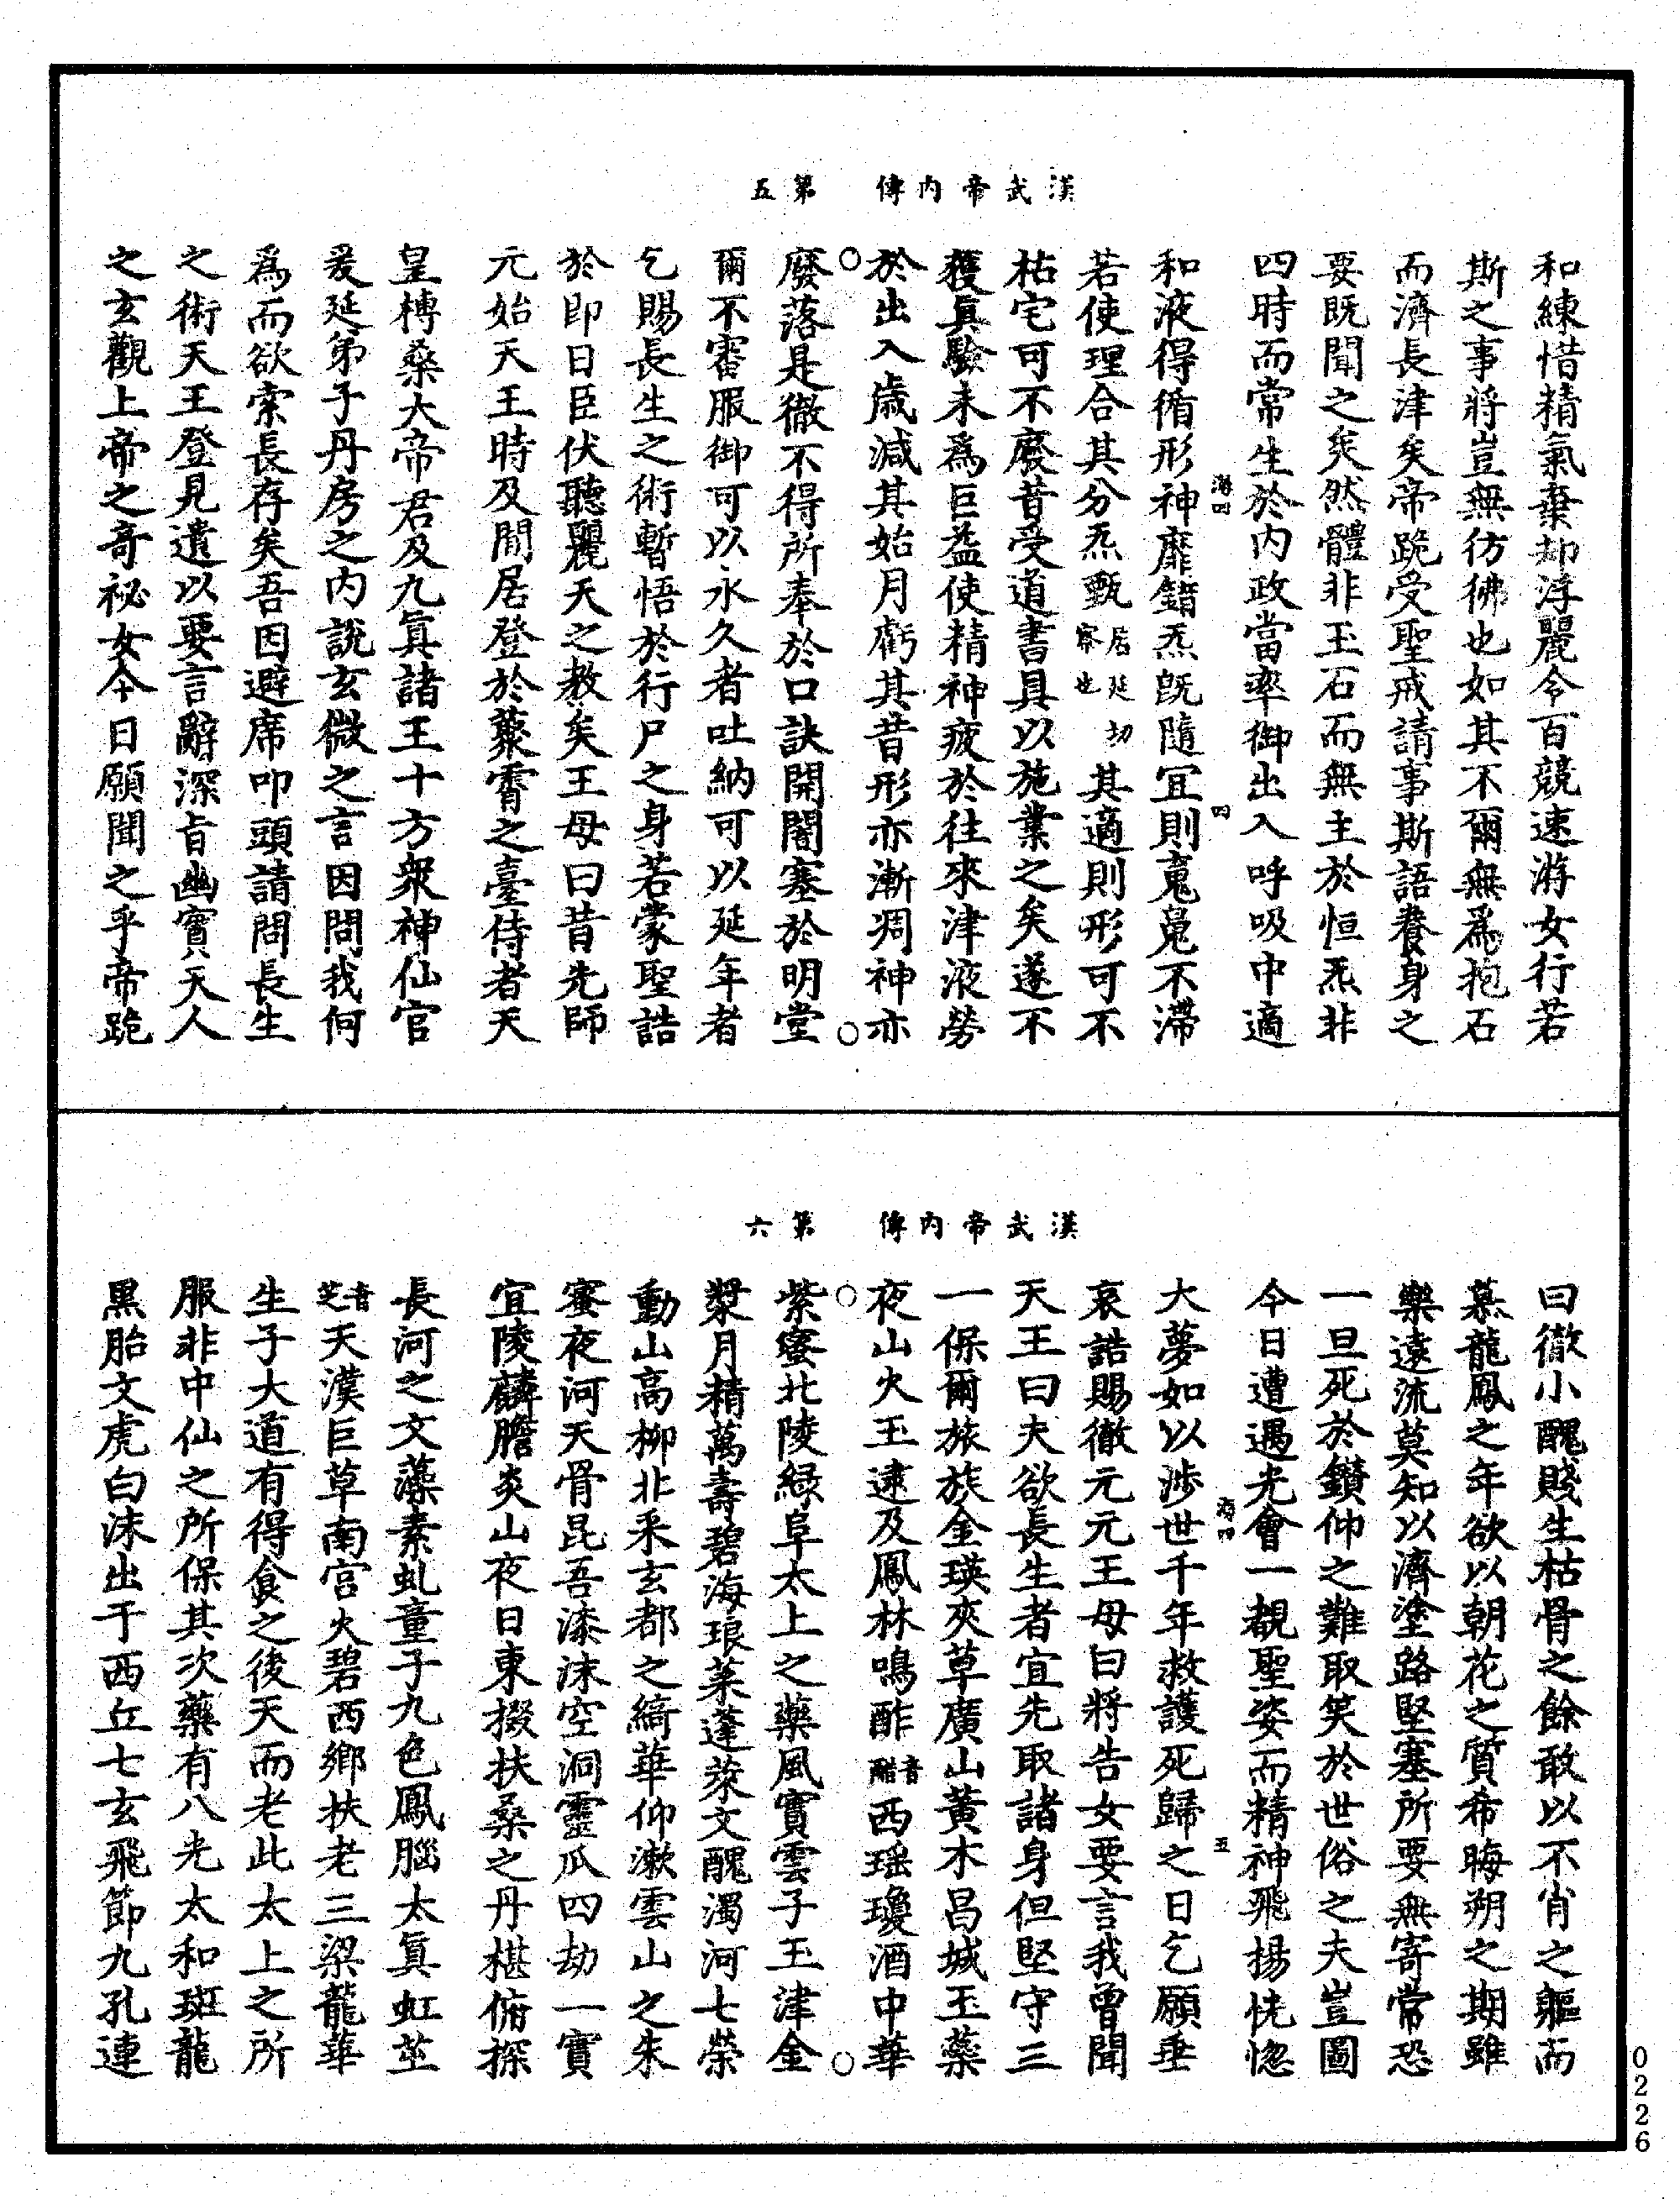 漢武帝內傳　第五
和練惜精氣棄却浮麗令百競速游女行若
斯之事將豈無彷彿也如其不爾無爲抱石
而濟長津矣帝跪受聖戒請事斯語養身之
要既聞之矣然體非玉石而無主於恒炁非
四時而常生於內政當率御出入呼吸中適
海四　四
和液得循形神靡錯炁既隨宜則䰟䰟不滯
若使理合其分炁甄居延切察也其適則形可不
枯宅可不廢昔受道書具以施業之矣遂不
獲眞驗未爲巨益使精神疲於往來津液勞
於出入歲減其始月虧其昔形亦漸凋神亦
廢落是徹不得所奉於口訣開闇塞於明堂
爾不審服御可以永久者吐納可以延年者
乞賜長生之術暫悟於行尸之身若蒙聖誥
於即日臣伏聽麗天之教矣王母曰昔先師
元始天王時及閒居登於藂霄之臺侍者天
皇榑桑大帝君及九眞諸王十方衆神仙官
爰延弟子丹房之內說玄微之言因問我何
爲而欲索長存矣吾因避席叩頭請問長生
之術天王登見遺以要言辭深旨幽實天人
之玄觀上帝之奇祕女今日願聞之乎帝跪
漢武帝內傳　第六
曰徹小醜賤生枯骨之餘敢以不肖之軀而
慕龍鳳之年欲以朝花之質希晦朔之期雖
樂遠流莫知以濟塗路堅塞所要無寄常恐
一旦死於鑚仰之難取笑於世俗之夫豈圖
今日遭遇光會一覩聖姿而精神飛揚恍惚
海四　五
大夢如以涉世千年救護死歸之日乞願垂
哀誥賜徹元元王母曰將告女要言我曾聞
天王曰夫欲長生者宜先取諸身但堅守三
一保爾旅族金瑛夾草廣山黃木昌城玉蘂
夜山火玉逮及鳳林鳴酢音醋西瑶瓊酒中華
紫蜜北陵綠阜太上之藥風實雲子玉津金
漿月精萬壽碧海琅菜蓬萊文醜濁河七榮
動山高柳北采玄都之綺華仰漱雲山之朱
蜜夜河天骨昆吾漆沫空洞靈瓜四劫一實
宜陵麟膽炎山夜日東掇扶桑之丹椹俯探
長河之文藻素虬童子九色鳳腦太眞虹芷
音芝天漢巨草南宮火碧西鄉扶老三梁龍華
生子大道有得食之後天而老此太上之所
服非中仙之所保其次藥有八光太和斑龍
黑胎文虎白沫出于西丘七玄飛節九孔連
0226